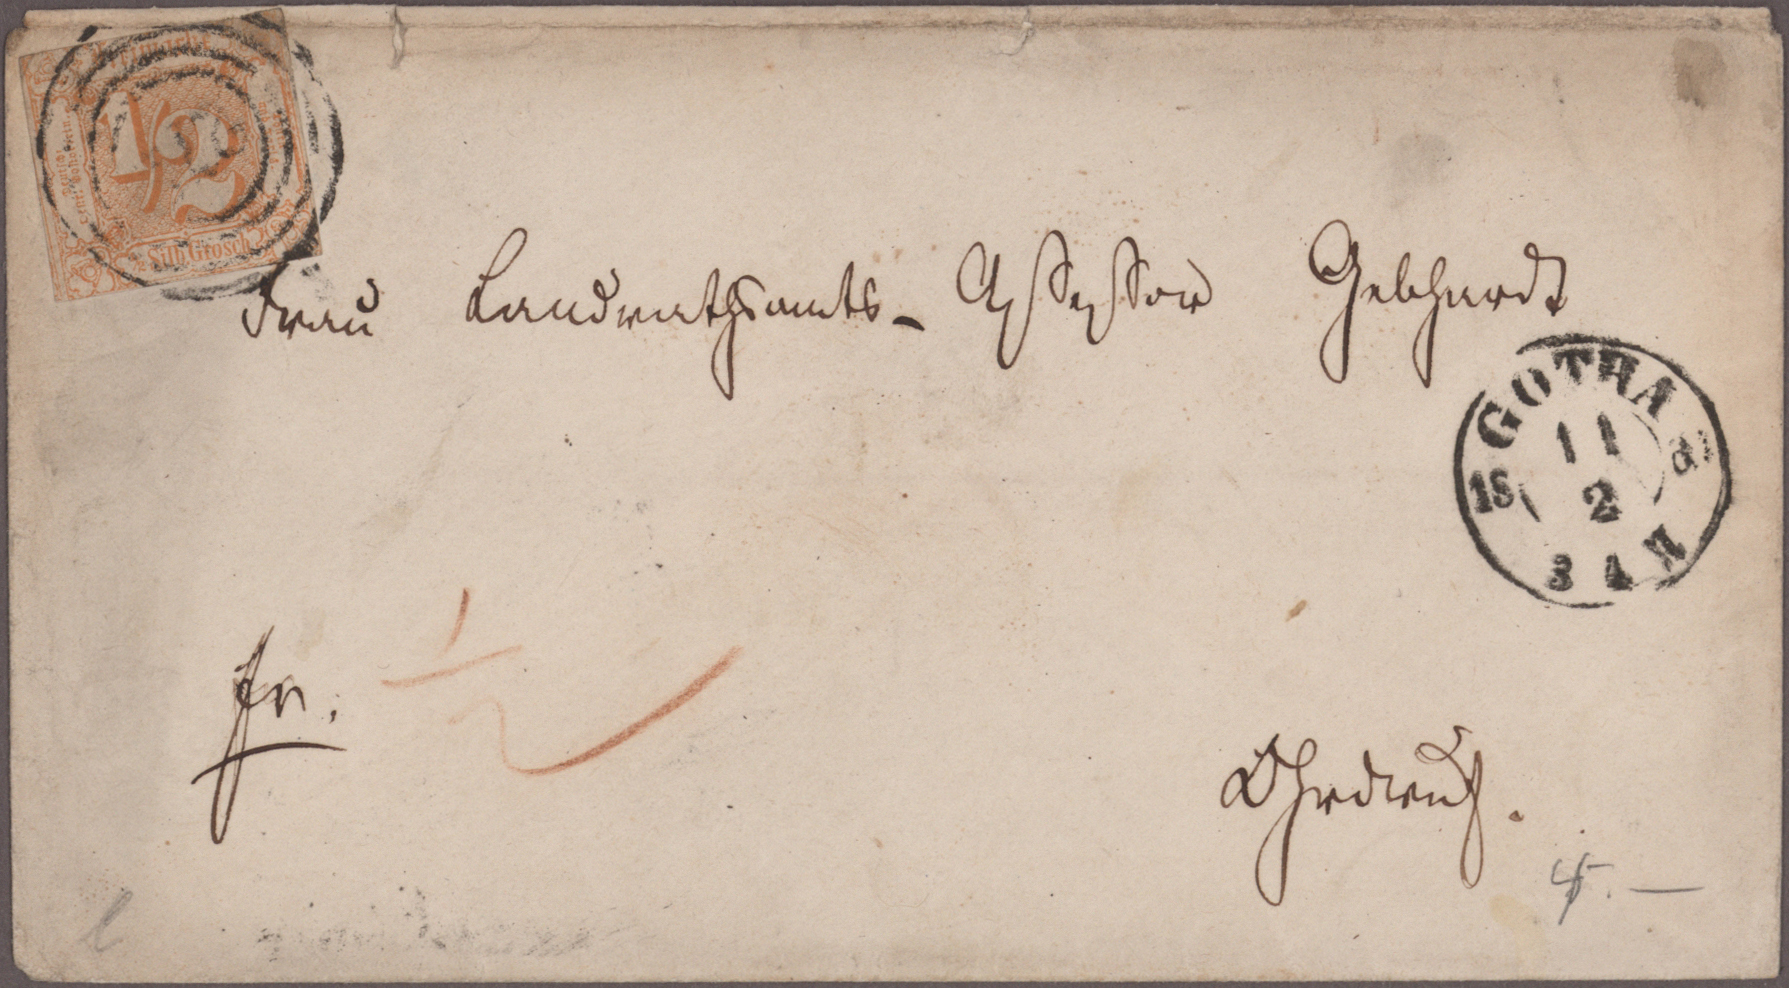 1/2
Silb. Grosch
Frau Landrathsamts-Assessor Gebhardt
GOTHA
11
2
18
3 4 N
fr. 1/2
Ohrdruf.